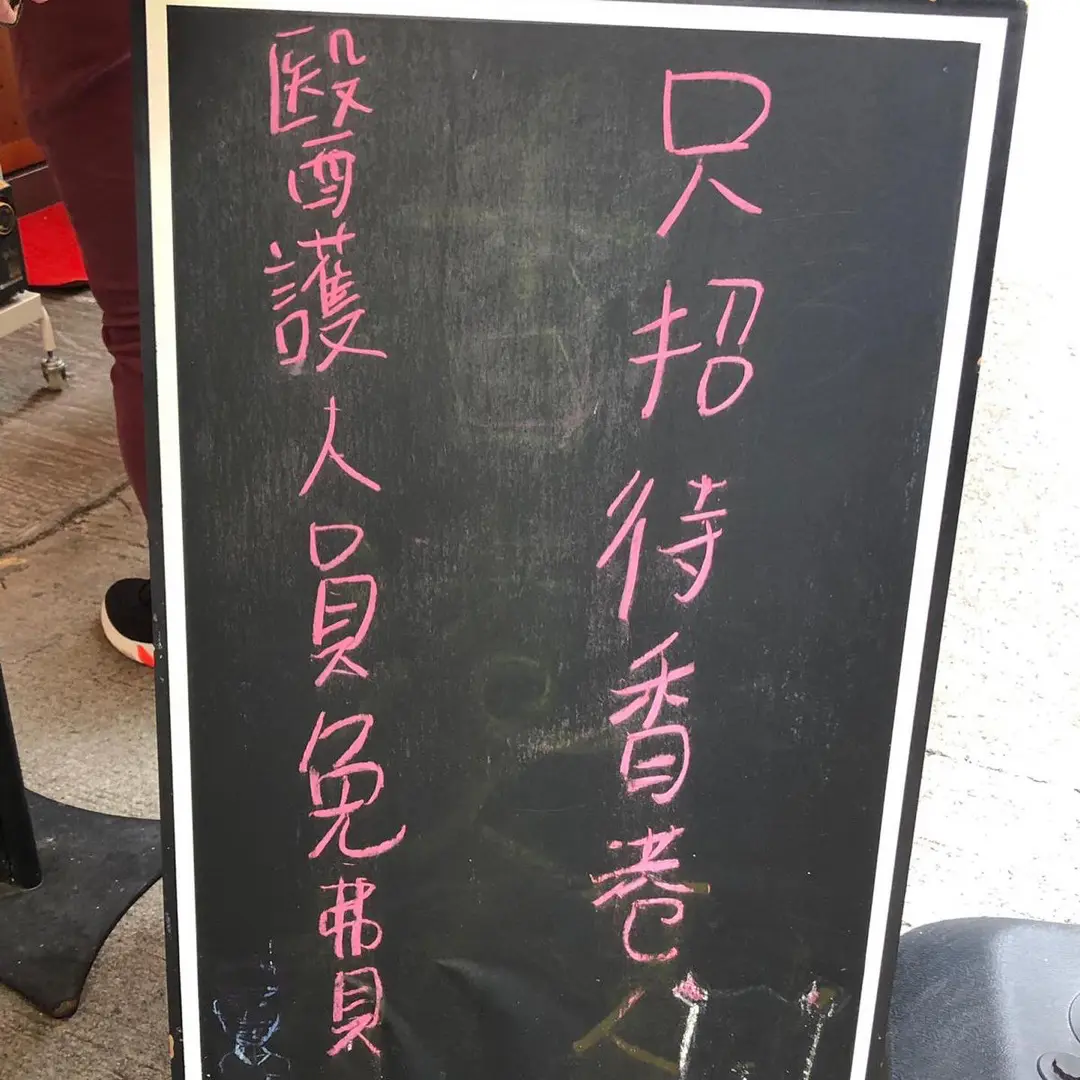 只招待香巷人
醫護人員免費